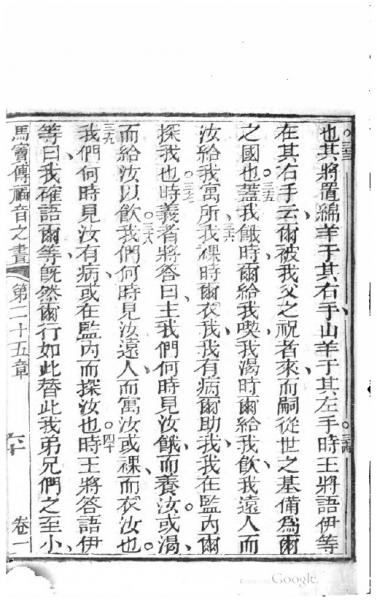 三三也其將置綿羊于其右手、山羊于其左手。三四時王將語伊等
在其右手云、爾被我父之祝者來而嗣從世之基備為爾
之國也。三五蓋我餓時爾給我喫、我渴時爾給我飲、我遠人而
汝給我寓所、三六我裸時爾衣我、我有病爾助我、我在監內爾
探我也。三七時義者將答曰、主我們何時見汝餓而養汝。或渴
而給汝以飲。三八我們何時見汝遠人而寓汝、或裸而衣汝也。
三九我們何時見汝有病、或在監內而探汝也。四十時王將答語伊
等曰、我確語爾等、既然爾行如此替此我弟兄們之至小、
馬竇傳福音之書 第二十五章 六十 卷一
Google